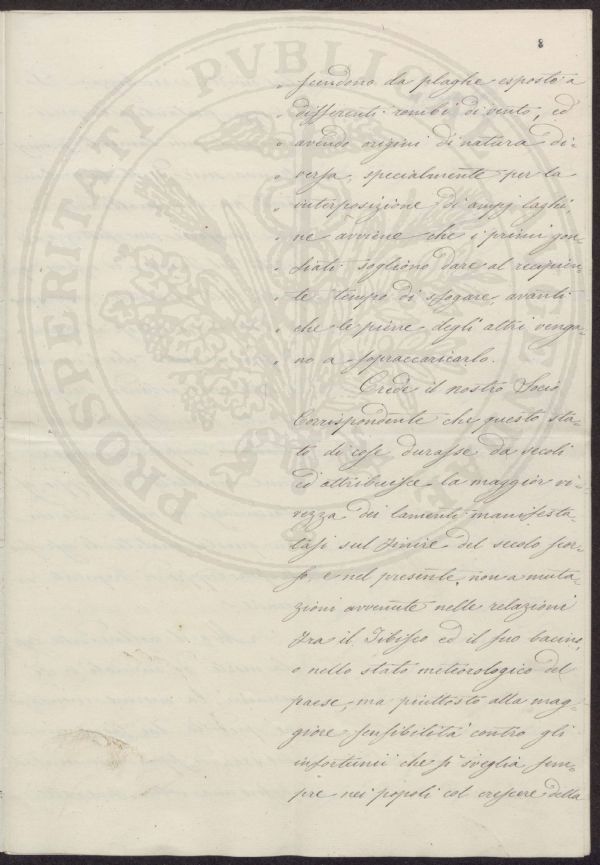 8
„ scendono da plaghe esposte a
„ differenti rombi di vento, ed
„ avendo origini di natura di-
„ versa, specialmente per la
„ interposizione di ampj laghi
„ ne avviene che i primi gon-
„ fiati sogliono dare al recipien-
„ te tempo di sfogare, avanti
„ che le piene degli altri venga-
„ no a sopraccaricarlo.
Crede il nostro Socio
Corrispondente che questo sta-
to di cose durasse da secoli
ed attribuisce la maggior vi-
vezza dei lamenti manifesta-
tasi sul finire del secolo scor-
so, e nel presente, non a muta-
zioni avvenute nelle relazioni
fra il Tibisco ed il suo bacino,
o nello stato meteorologico del
paese, ma piuttosto alla mag-
giore sensibilità contro gli
infortunii che si sveglia sem-
pre nei popoli col crescere della
PROSPERITATI PVBLICAE